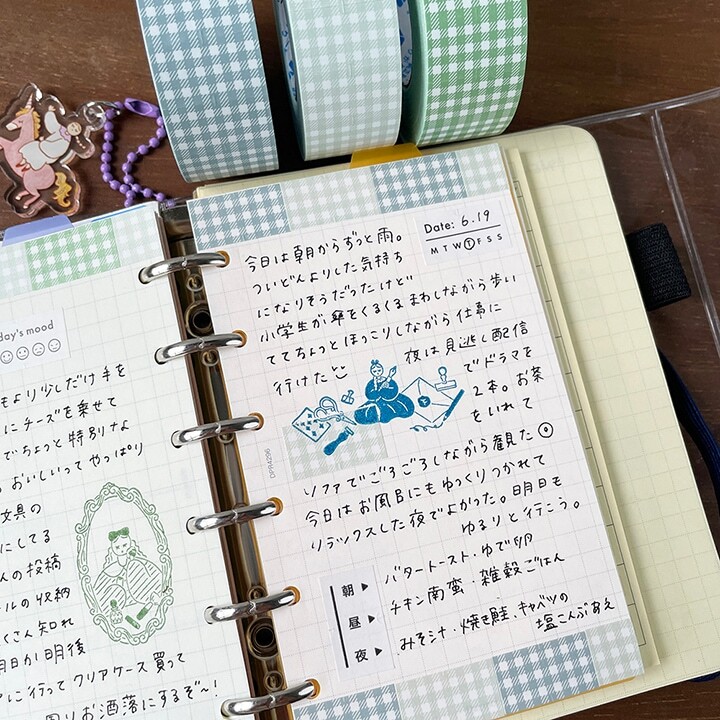 day's mood
もより少しだけ手を
にチーズを乗せて
でちょっと特別な
。おいしいって やっぱり
文具の
にしてる
んの投稿
ールの収納
くさん知れ
明日か明後
アに行って クリアケース 買って
周りお洒落にするぞ〜！
Date: 6.19
M T W T F S S
今日は朝からずっと雨。
ついどんよりした気持ち
になりそうだったけど
小学生が 傘をくるくるまわしながら歩い
ててちょっとほっこりしながら 仕事に
行けた
夜は見逃し配信
でドラマを
2本。お茶
をいれて
DPR4296
ソファでごろごろしながら観た
今日はお風呂にもゆっくりつかれて
リラックスした夜でよかった。明日も
ゆるりと行こう。
朝 ▶ バタートースト・ゆで卵
昼 ▶ チキン南蛮・雑穀ごはん
夜 ▶ みそシナ・焼き鮭、キャベツの
塩こんぶあえ